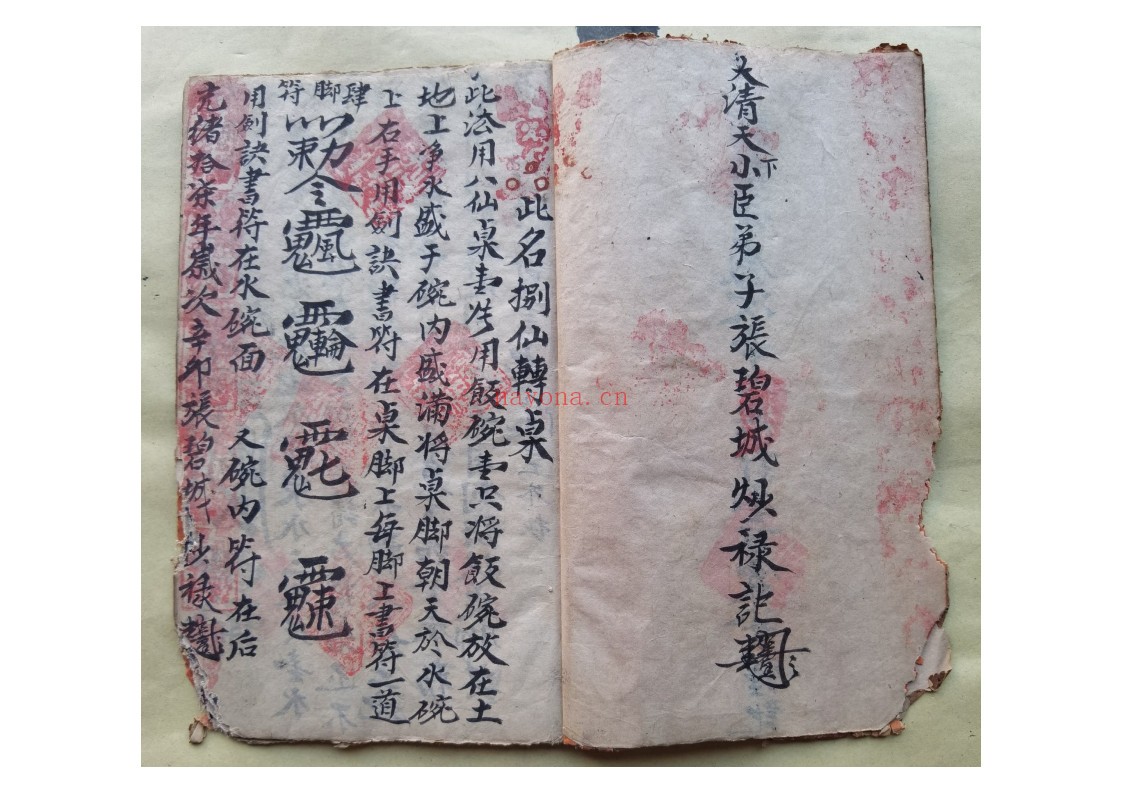 文清天下小臣弟子張碧城 禄記
此名捌仙轉桌
此法用八仙桌壹張用飯碗壹只將飯碗放在土
地上净水盛于碗内盛滿將桌脚朝天於水碗
上右手用劍訣書符在桌脚上每脚上書符一道
肆脚符
勅令
用劍訣書符在水碗面 又碗内符在后
光绪拾柒年嵗次辛卯張碧城抄禄
nayona.cn